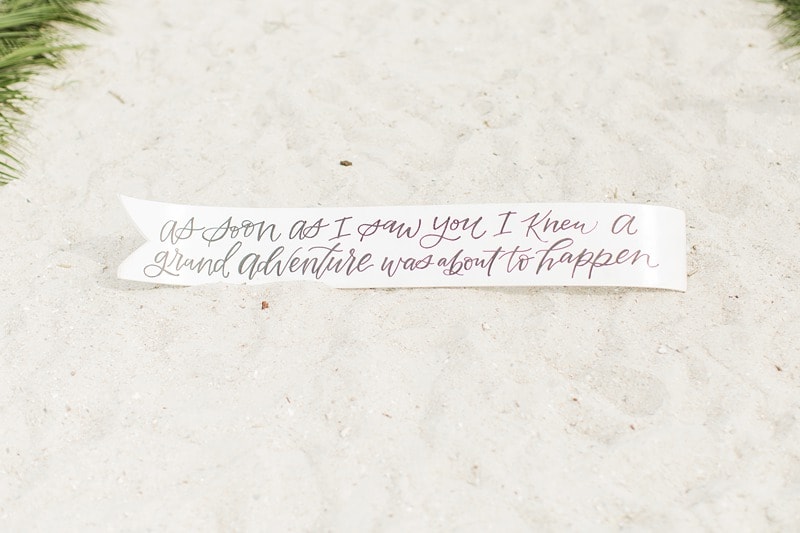 as soon as I saw you I knew a
grand adventure was about to happen